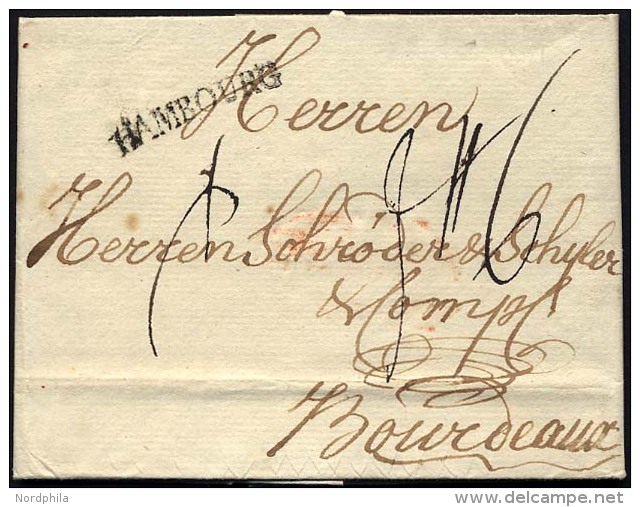 HAMBOURG
Herren
Herren Schröder & Schyler
& Comp
Bourdeaux
Nordphila
delcampe.net